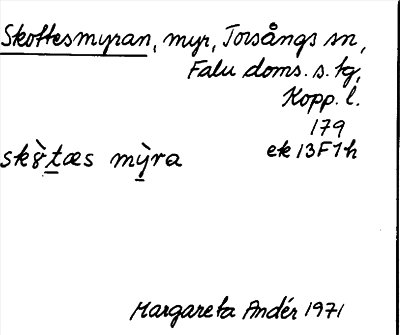 Skottesmyran, myr, Torsångs sn,
Falu doms. s. tg,
Kopp. l.
179
ek 13F1h
sk8̀t̲æs mỳ̲ra
Margareta Andér 1971